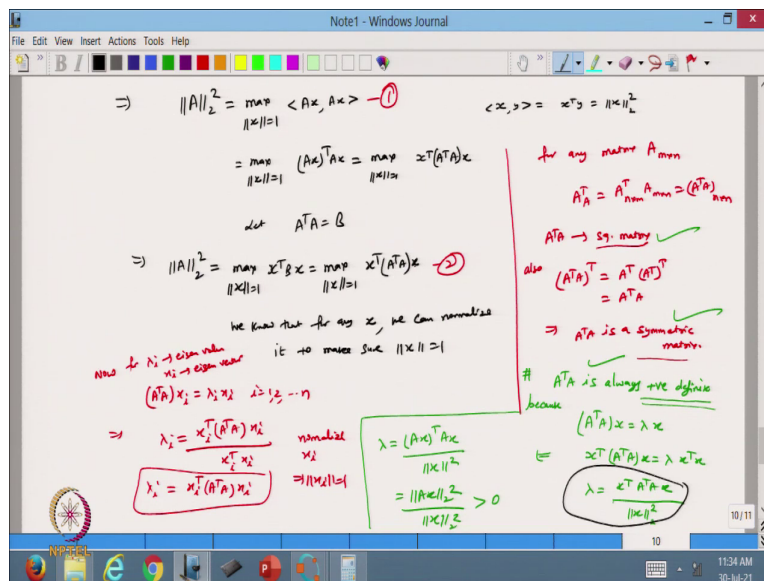 Note1 - Windows Journal
File Edit View Insert Actions Tools Help
⇒ ||A||₂² = max_{||x||=1} <Ax, Ax> —①
<x,y> = xᵀy = ||x||₂²
= max_{||x||=1} (Ax)ᵀAx = max_{||x||=1} xᵀ(AᵀA)x
Let AᵀA = B
⇒ ||A||₂² = max_{||x||=1} xᵀBx = max_{||x||=1} xᵀ(AᵀA)x —②
we know that for any x, we can normalize
it to make sure ||x|| = 1
Now for λᵢ → eigen value
xᵢ → eigen vector
(AᵀA)xᵢ = λᵢxᵢ i=1,2,...n
⇒ λᵢ = xᵢᵀ(AᵀA)xᵢ / xᵢᵀxᵢ
normalize
xᵢ
⇒ ||xᵢ||=1
λᵢ = xᵢᵀ(AᵀA)xᵢ
λ = (Ax)ᵀAx / ||x||²
= ||Ax||₂² / ||x||₂² > 0
for any matrix A_{m×n}
AᵀA = Aᵀ_{n×m} A_{m×n} = (AᵀA)_{n×n}
AᵀA → sq. matrix ✓
also (AᵀA)ᵀ = Aᵀ(Aᵀ)ᵀ
= AᵀA
⇒ AᵀA is a symmetric
matrix.
# AᵀA is always +ve definite
because
(AᵀA)x = λx
⇐ xᵀ(AᵀA)x = λxᵀx
λ = xᵀAᵀAx / ||x||₂²
10/11
10
NPTEL
11:34 AM
30-Jul-21